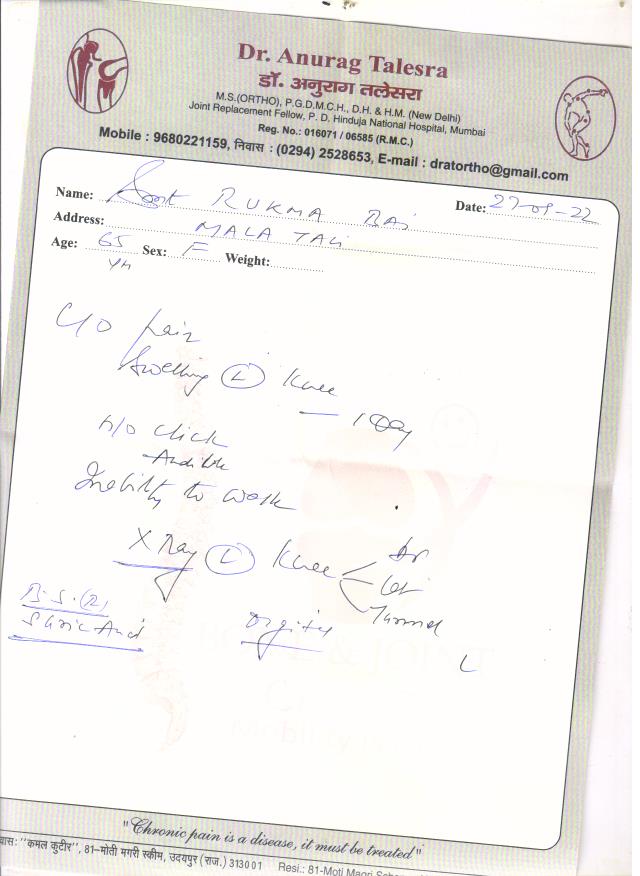 Dr. Anurag Talesra
डॉ. अनुराग तलेसरा
M.S.(ORTHO), P.G.D.M.C.H., D.H. & H.M. (New Delhi)
Joint Replacement Fellow, P. D. Hinduja National Hospital, Mumbai
Reg. No.: 016071 / 06585 (R.M.C.)
Mobile : 9680221159, निवास : (0294) 2528653, E-mail : dratortho@gmail.com
Name: RUKMA BAI Date: 27-09-22
Address: MALA TALI
Age: 65 Sex: F Weight:
yrs
C/O pain
Swelling (L) Knee
1 Day
h/o click
Audible
Inability to walk
X Ray (L) Knee AP
Lat
Tunnel
B.S. (R)
S Uric Acid
L
"Chronic pain is a disease, it must be treated"
वास: "कमल कुटीर", 81-मोती मगरी स्कीम, उदयपुर (राज.) 313001 Resi.: 81-Moti Magri